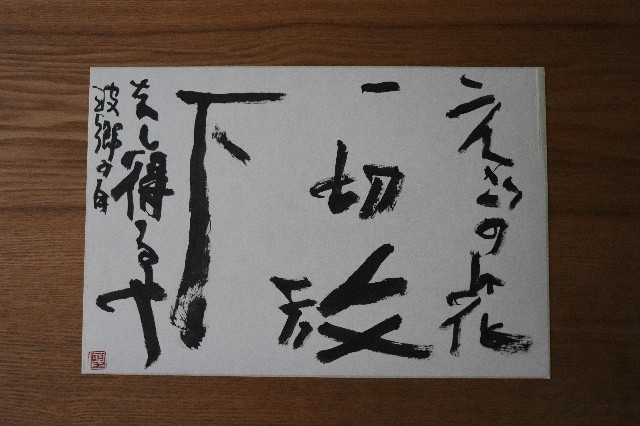 えごの花
一切放
下
なし得るや
波郷の句